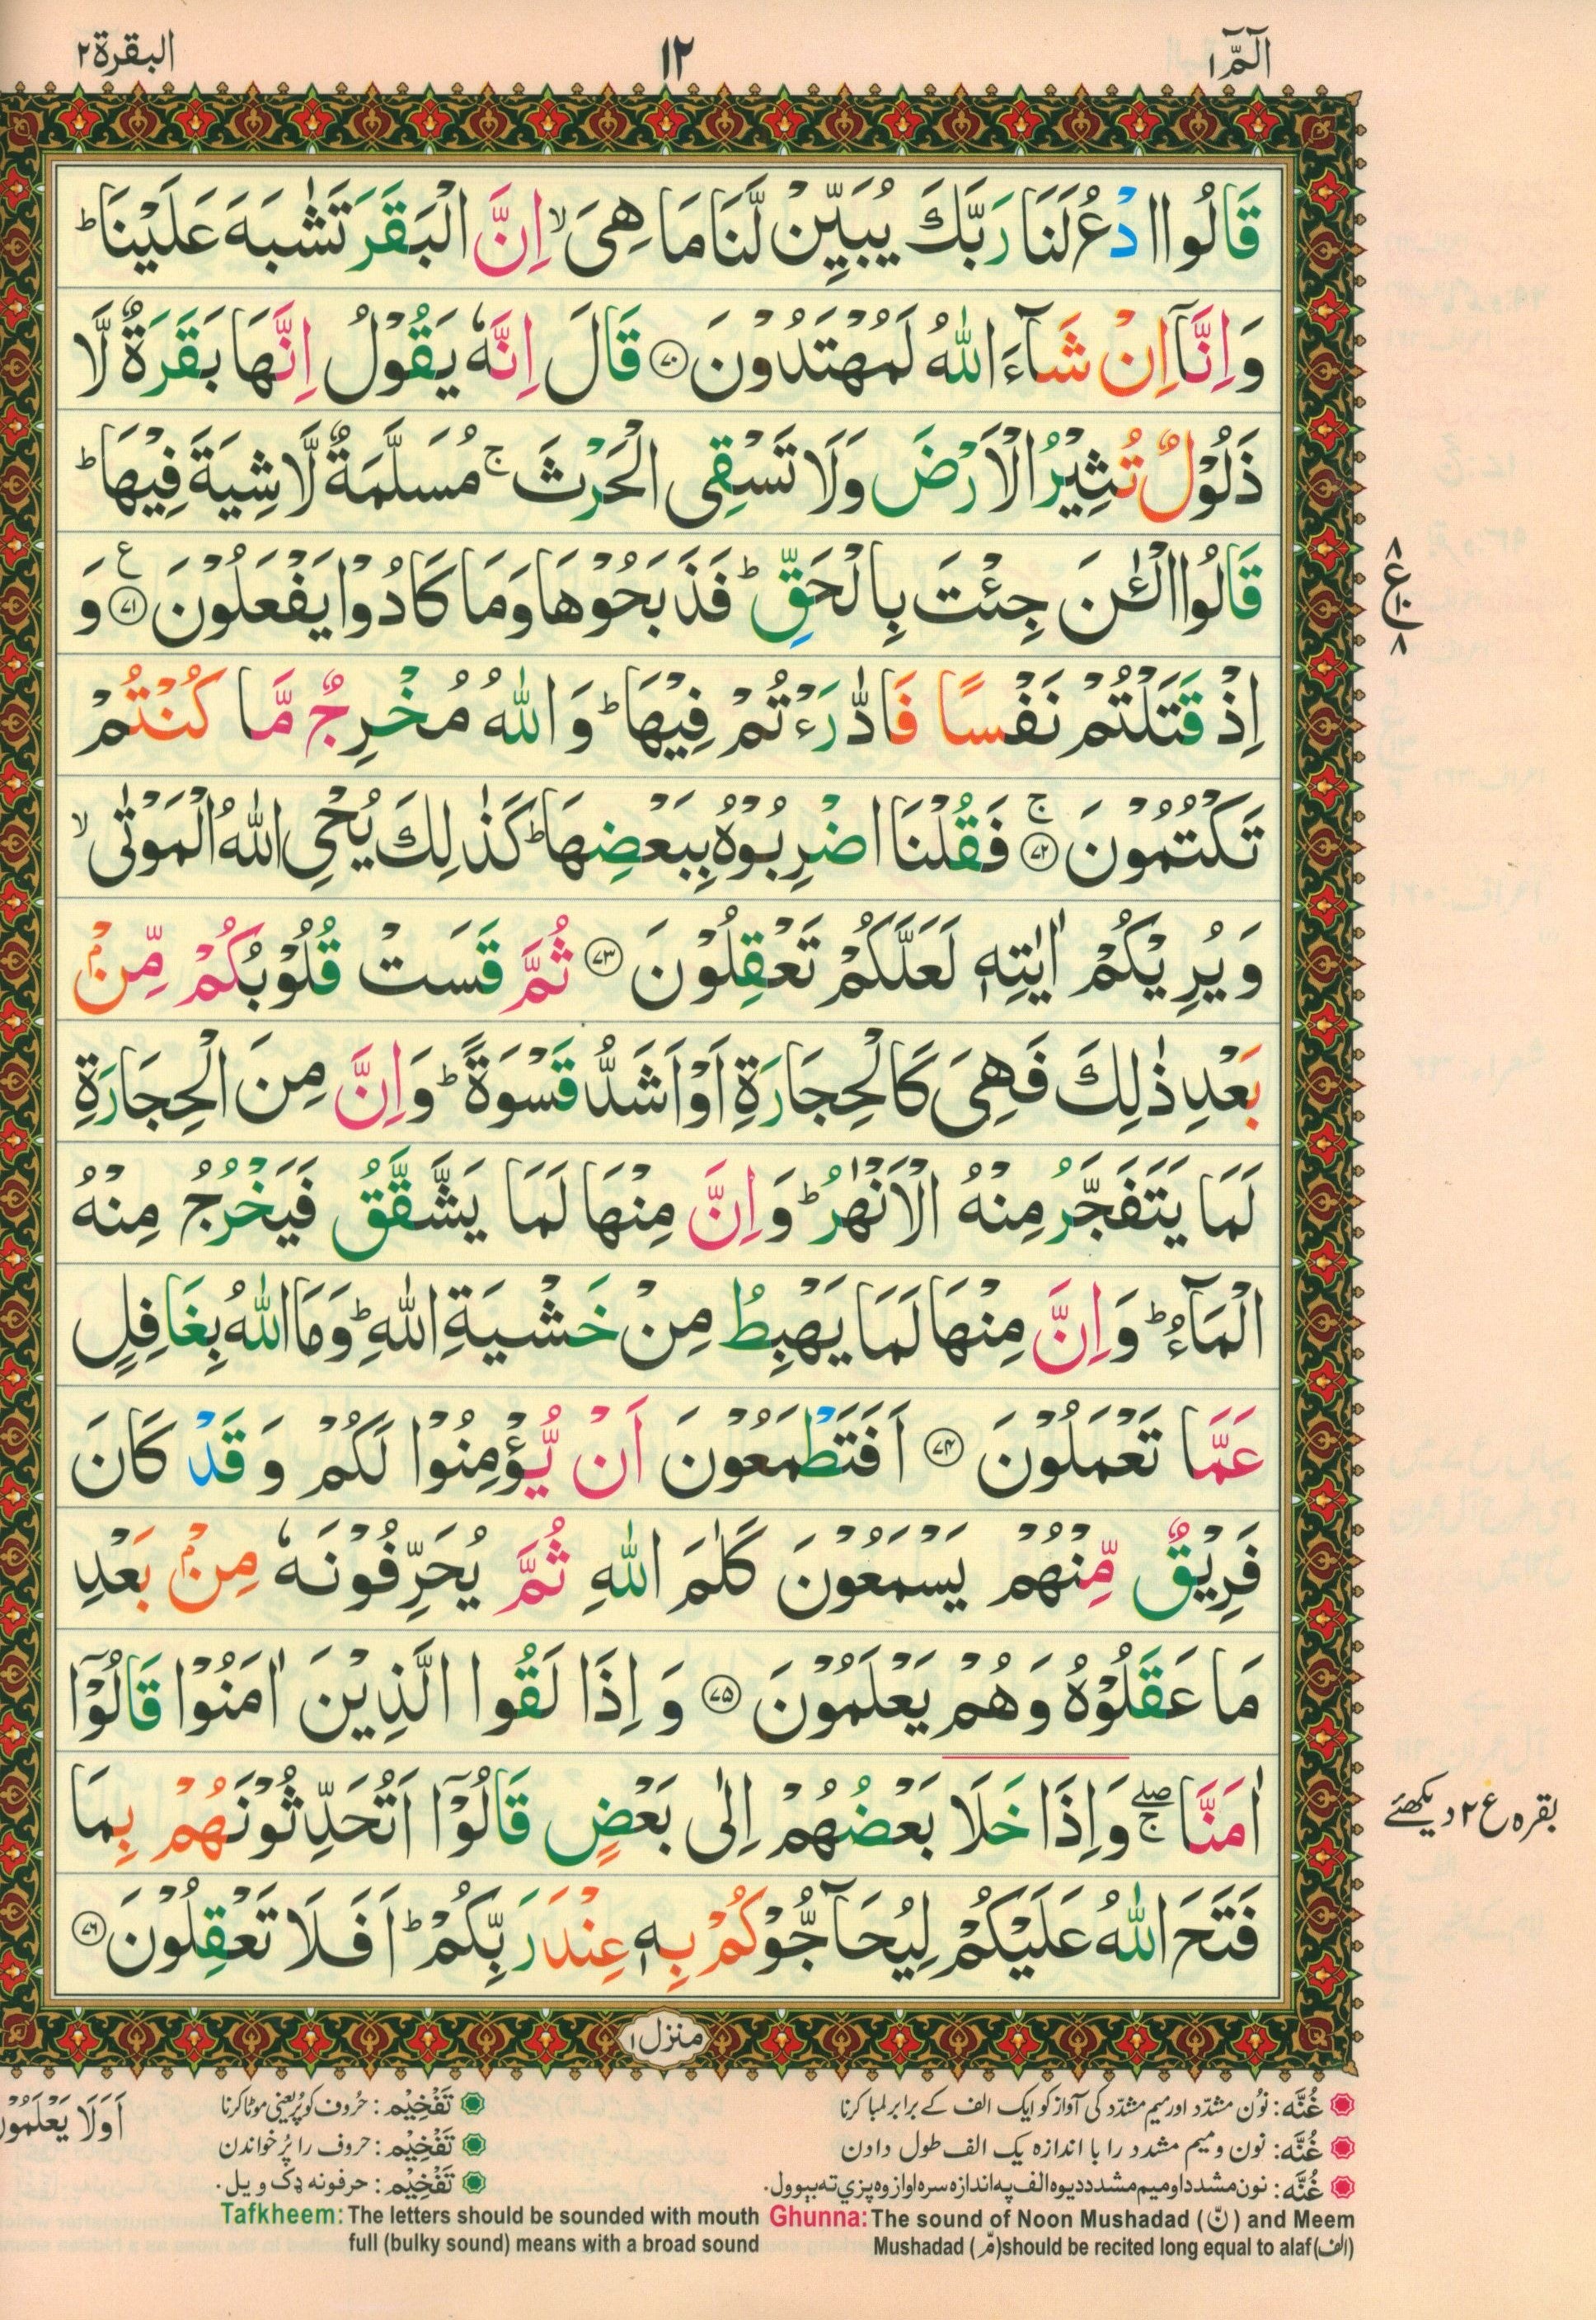 الٓمّٓ ١
١٢
البقرة ٢
قَالُوا ادْعُ لَنَا رَبَّكَ يُبَيِّنْ لَّنَا مَا هِيَ ۙ اِنَّ الْبَقَرَ تَشٰبَهَ عَلَيْنَا ؕ
وَاِنَّاۤ اِنْ شَآءَ اللّٰهُ لَمُهْتَدُوْنَ ﴿۷۰﴾ قَالَ اِنَّهٗ يَقُوْلُ اِنَّهَا بَقَرَةٌ لَّا
ذَلُوْلٌ تُثِيْرُ الْاَرْضَ وَلَا تَسْقِى الْحَرْثَ ۚ مُسَلَّمَةٌ لَّا شِيَةَ فِيْهَا ؕ
قَالُوا الْـٰٔنَ جِئْتَ بِالْحَقِّ ؕ فَذَبَحُوْهَا وَمَا كَادُوْا يَفْعَلُوْنَ ﴿۷۱﴾ ع وَ
٨ ع ١٠ ٨
اِذْ قَتَلْتُمْ نَفْسًا فَادّٰرَءْتُمْ فِيْهَا ؕ وَاللّٰهُ مُخْرِجٌ مَّا كُنْتُمْ
تَكْتُمُوْنَ ﴿۷۲﴾ ۚ فَقُلْنَا اضْرِبُوْهُ بِبَعْضِهَا ؕ كَذٰلِكَ يُحْيِ اللّٰهُ الْمَوْتٰى ۙ
وَيُرِيْكُمْ اٰيٰتِهٖ لَعَلَّكُمْ تَعْقِلُوْنَ ﴿۷۳﴾ ثُمَّ قَسَتْ قُلُوْبُكُمْ مِّنْۢ
بَعْدِ ذٰلِكَ فَهِيَ كَالْحِجَارَةِ اَوْ اَشَدُّ قَسْوَةً ؕ وَاِنَّ مِنَ الْحِجَارَةِ
لَمَا يَتَفَجَّرُ مِنْهُ الْاَنْهٰرُ ؕ وَاِنَّ مِنْهَا لَمَا يَشَّقَّقُ فَيَخْرُجُ مِنْهُ
الْمَآءُ ؕ وَاِنَّ مِنْهَا لَمَا يَهْبِطُ مِنْ خَشْيَةِ اللّٰهِ ؕ وَمَا اللّٰهُ بِغَافِلٍ
عَمَّا تَعْمَلُوْنَ ﴿۷۴﴾ اَفَتَطْمَعُوْنَ اَنْ يُّؤْمِنُوْا لَكُمْ وَقَدْ كَانَ
فَرِيْقٌ مِّنْهُمْ يَسْمَعُوْنَ كَلٰمَ اللّٰهِ ثُمَّ يُحَرِّفُوْنَهٗ مِنْۢ بَعْدِ
مَا عَقَلُوْهُ وَهُمْ يَعْلَمُوْنَ ﴿۷۵﴾ وَاِذَا لَقُوا الَّذِيْنَ اٰمَنُوْا قَالُوْۤا
اٰمَنَّا ۖۚ وَاِذَا خَلَا بَعْضُهُمْ اِلٰى بَعْضٍ قَالُوْۤا اَتُحَدِّثُوْنَهُمْ بِمَا
بقره ع ۲ دیکھئے
فَتَحَ اللّٰهُ عَلَيْكُمْ لِيُحَآجُّوْكُمْ بِهٖ عِنْدَ رَبِّكُمْ ؕ اَفَلَا تَعْقِلُوْنَ ﴿۷۶﴾
منزل ۱
غُنَّه: نُون مشدّد اور میم مشدّد کی آواز کو ایک الف کے برابر لمبا کرنا
تَفْخِيْم: حُروف کو پُر یعنی موٹا کرنا
اَوَلَا يَعْلَمُوْنَ
غُنَّه: نون و میم مشدد را با اندازه یک الف طول دادن
تَفْخِيْم: حروف را پُر خواندن
غُنَّه: نون مشدد او میم مشدد دیوه الف په اندازه سره اواز وه پزي ته بېوول.
تَفْخِيْم: حرفونه ډک ویل.
Ghunna: The sound of Noon Mushadad (نّ) and Meem
Mushadad (مّ) should be recited long equal to alaf (الف)
Tafkheem: The letters should be sounded with mouth
full (bulky sound) means with a broad sound